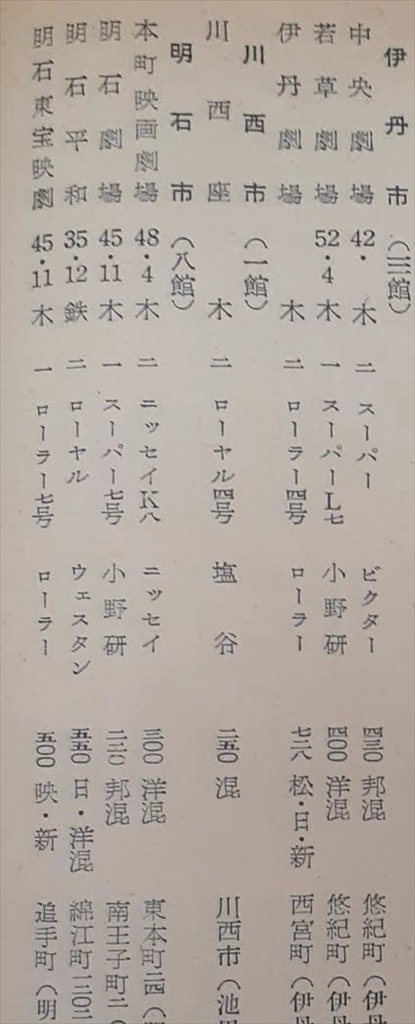 伊丹市（三館）
中央劇場 42・ 木 二 スーパー ビクター 四三〇 邦混 悠紀町（伊
若草劇場 52・4 木 一 スーパーL七 小野研 四〇〇 洋混 悠紀町（伊
伊丹劇場 木 二 ローラー四号 ローラー 七二八 松・日・新 西宮町（伊丹
川西市（一館）
川西座 木 二 ローヤル四号 塩谷 二五〇 混 川西市（池
明石市（八館）
本町映画劇場 48・4 木 二 ニッセイK八 ニッセイ 三〇〇 洋混 東本町二四（
明石劇場 45・11 木 一 スーパー七号 小野研 邦混 南王子町二（
明石平和 35・12 鉄 二 ローヤル ウェスタン 五五〇 日・洋混 錦江町一二〇二
明石東宝映劇 45・11 木 一 ローラー七号 ローラー 五〇〇 映・新 追手町（明